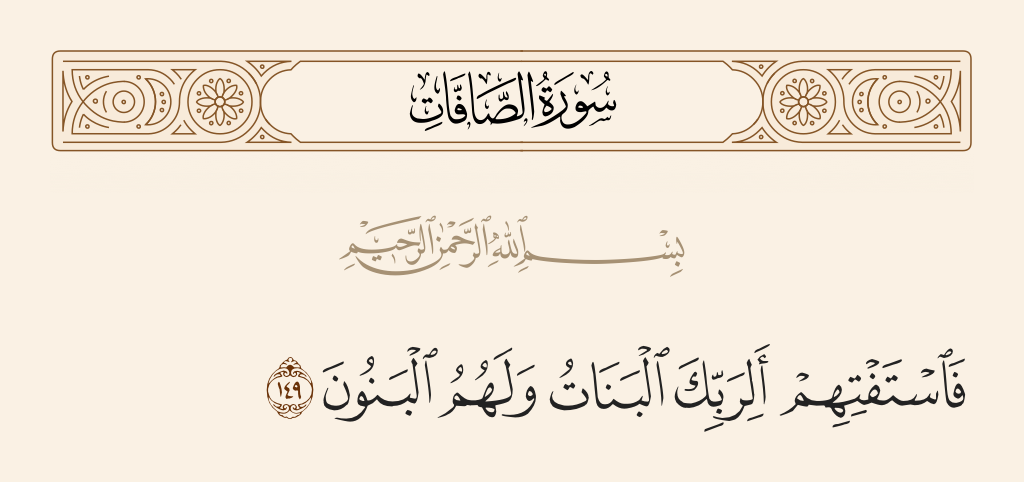 سُورَةُ الصَّافَّاتِ
بِسْمِ ٱللَّهِ ٱلرَّحْمَٰنِ ٱلرَّحِيمِ
فَٱسْتَفْتِهِمْ أَلِرَبِّكَ ٱلْبَنَاتُ وَلَهُمُ ٱلْبَنُونَ ١٤٩